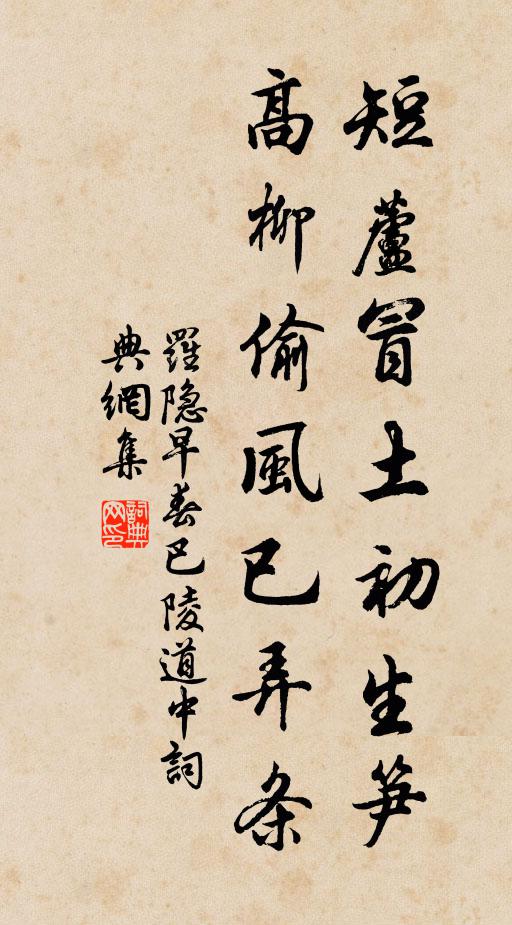 短蘆冒土初生笋
高柳偷風已弄条
羅隐早春巴陵道中詞
典網集
詞典网印